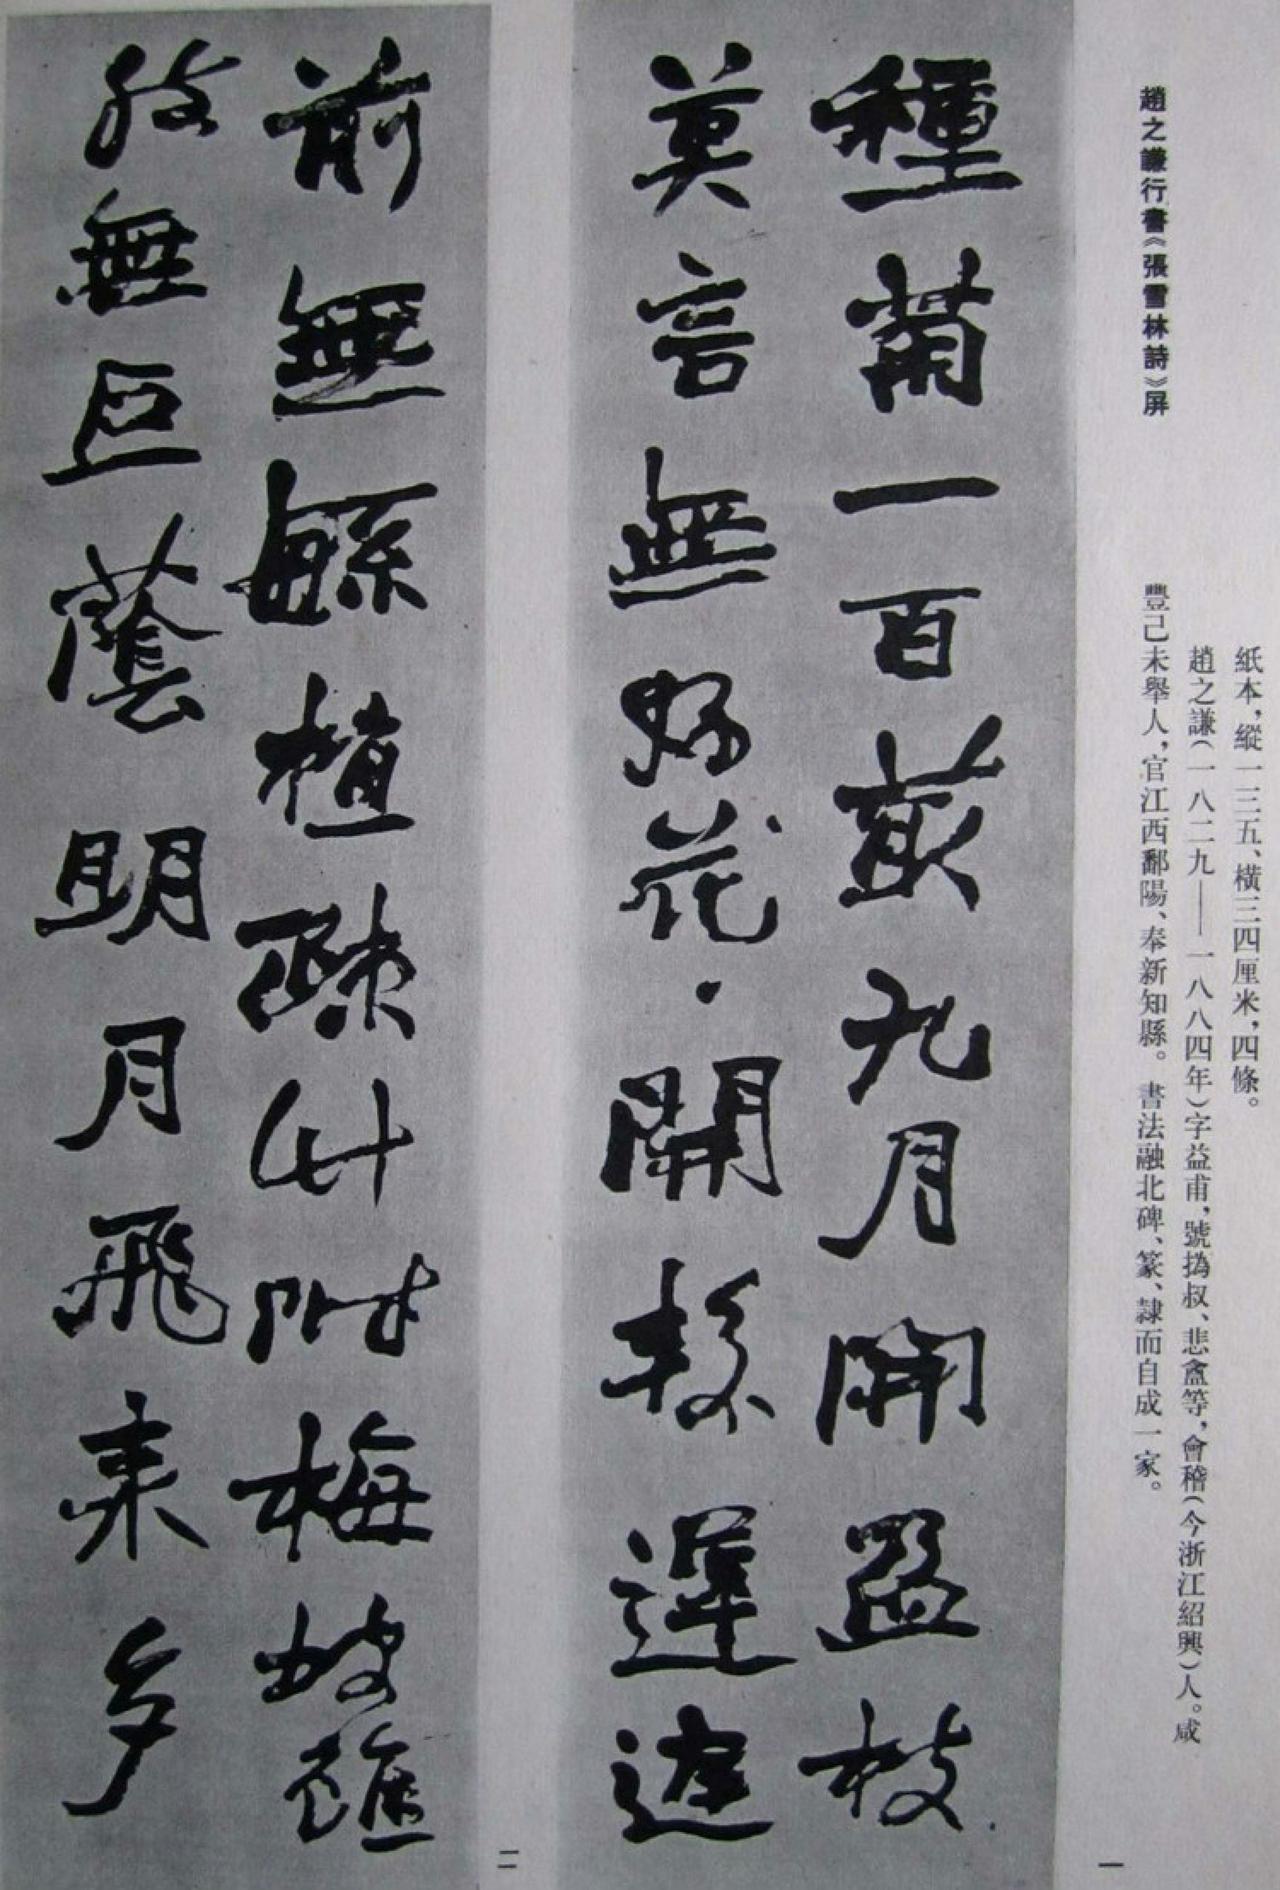 趙之謙行書《張雪林詩》屏
紙本，縱一三五、橫三四厘米，四條。
趙之謙（一八二九——一八八四年）字益甫，號撝叔、悲盦等，會稽（今浙江紹興）人。咸
豐己未舉人，官江西鄱陽、奉新知縣。書法融北碑、篆、隸而自成一家。
種菊一百叢九月開盈枝
莫言無好花開較遲遲
一
前無繇植疎竹附梅坡
後無巨蔭明月飛來多
二